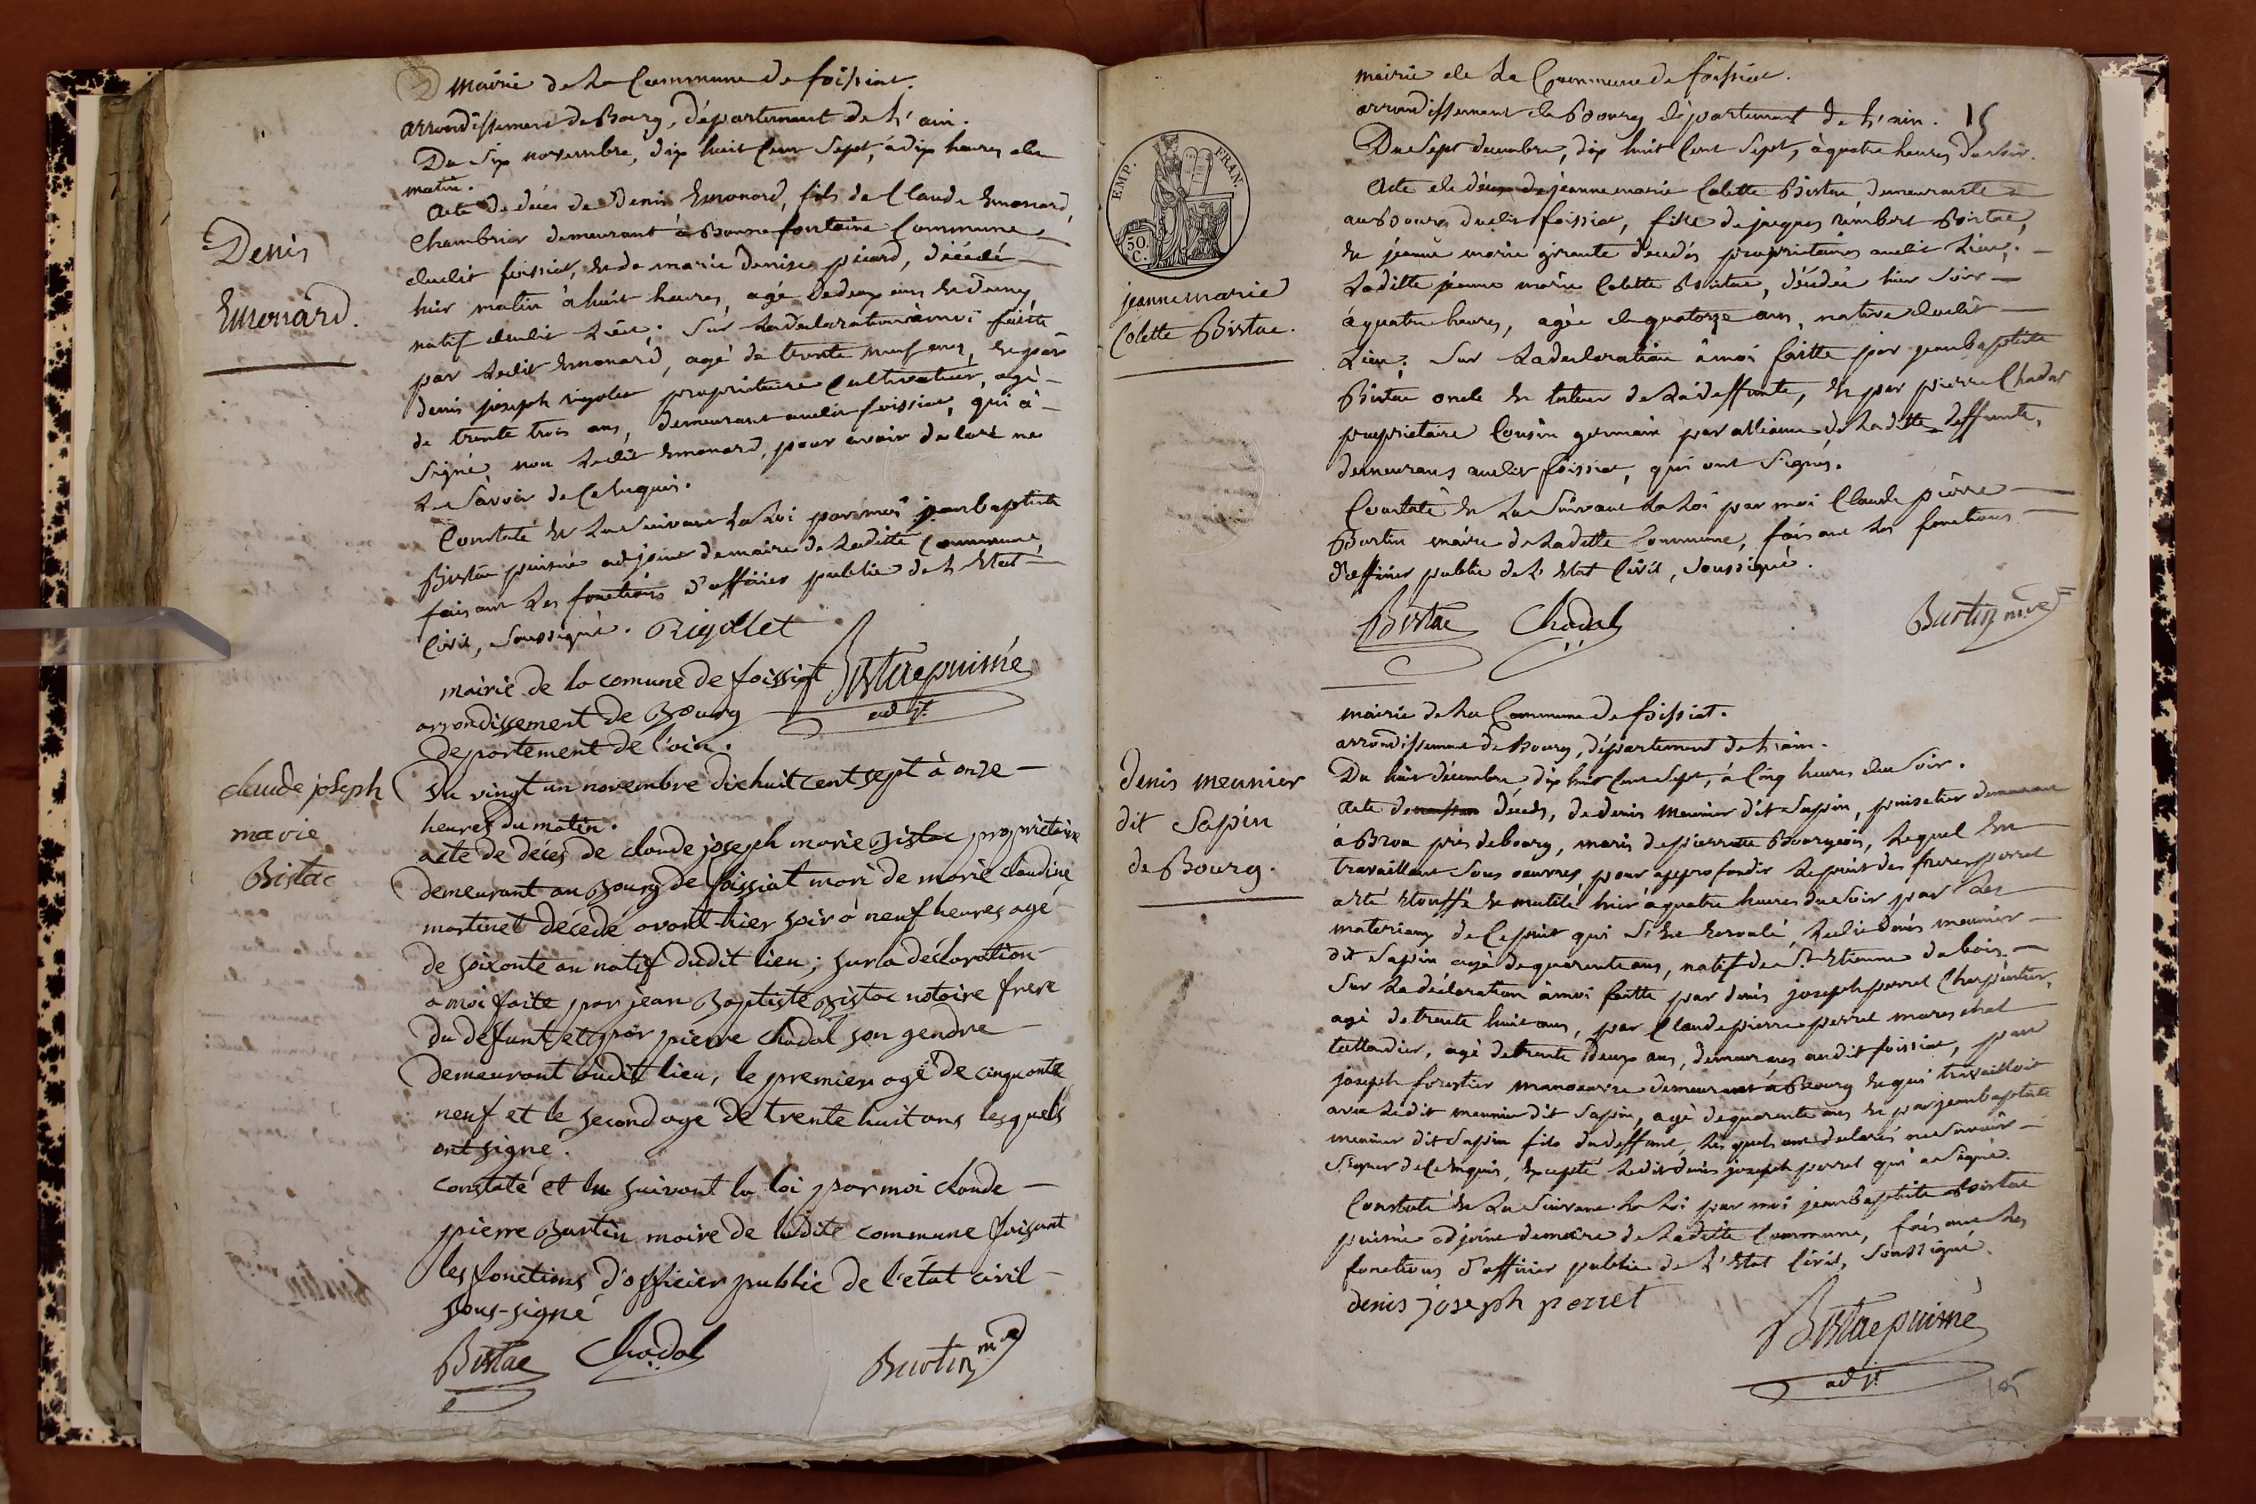 mairie de La Commune de foissiat.
arrondissement de Bourg, département de L'ain.
Du six novembre, dix huit Cent Sept, à dix heures du
matin.
Acte de décés de Denis Emonard, fils de Claude Emonard,
Chambrier demeurant à Bonnefontaine Commune
dudit foissiat, et de marie denise picard, décédé
hier matin à huit heures, agé de deux ans et demy,
natif dudit Lieu. Sur La déclaration à moi faitte
par Ledit Emonard, agé de trente neuf ans, et par
denis joseph rigolet propriétaire Cultivateur, agé
de trente trois ans, demeurant audit foissiat, qui a
signé non Ledit Emonard, pour avoir declaré ne
Le Savoir de Ce Enquis.
Constaté et Lu Suivant La Loi par moi jean baptiste
Bistac puisné adjoint de maire de Laditte Commune,
faisant Les fonctions d'officier public de L'Etat
Civil, Soussigné. Rigollet
Bistac puisné
adjt.
Denis
Emonard.
mairie de la comune de foissiat
arrondissement de Bourg
departement de l'ain.
du vingt un novembre dixhuit cent sept à onze
heures du matin.
acte de décés de claude joseph marie Bistac propriétaire
demeurant au Bourg de foissiat mari de marie claudine
martinet décédé avant hier soir à neuf heures agé
de soixante an natif dudit lieu; sur la déclaration
a moi faite par jean Baptiste Bistac notaire frere
du défunt et par pierre chadal son gendre
demeurant audit lieu, le premier agé de cinquante
neuf et le second agé de trente huit ans lesquels
ont signé.
constaté et lu suivant la loi par moi claude
pierre Burtin maire de ladite commune faisant
les fonctions d'officier public de l'état civil
sous-signé
Bistac Chadal Burtin mre
claude joseph
marie
Bistac
mairie de La Commune de foissiat.
arrondissement de Bourg département de L'ain. 15
Du Sept decembre, dix huit Cent Sept, à quatre heures du soir.
Acte de décés de jeanne marie Colette Bistac, demeurante
au Bourg dudit foissiat, fille de jacques rambert Bistac,
et jeanne marie girante décédés propriétaires audit Lieu;
Laditte jeanne marie Colette Bistac, décédée hier Soir
à quatre heures, agée de quatorze ans, native dudit
Lieu; Sur La declaration à moi faitte par jean baptiste
Bistac oncle et tuteur de La deffunte, et par pierre Chadal
propriétaire Cousin germain par alliance de Laditte deffunte,
demeurans audit foissiat, qui ont Signés.
Constaté et Lu Suivant La Loi par moi Claude pierre
Burtin maire de Laditte Commune, faisant Les fonctions
d'officier public de L'Etat Civil, soussigné.
Bistac Chadal Burtin mre
EMP. FRAN.
50.
C.
jeanne marie
Colette Bistac.
mairie de La Commune de foissiat.
arrondissement de Bourg, département de L'ain.
Du huit décembre, dix huit Cent Sept, à Cinq heures du Soir.
Acte de décés, de denis meunier dit Sapin, puisatier demeurant
à Brou près de bourg, maris de pierrette Bourgeois, Lequel en
travaillant Sous oeuvres, pour approfondir Le puit des freres perret
a été étouffé et mutilé hier à quatre heures du soir par Les
materiaux de Ce puit qui S'est éeroulé, Ledit denis meunier
dit Sapin agé de quarente ans, natif de St. Etienne du bois.
Sur La déclaration à moi faitte par denis joseph perret Charpentier,
agé de trente huit ans, par Claude pierre perret mareschal
taillandier, agé de trente deux ans, demeurans audit foissiat, par
joseph forestier manoeuvre demeurant à Bourg et qui travailloit
avec Ledit meunier dit Sapin, agé de quarente ans et par jean baptiste
meunier dit Sapin fils du deffunt, Lesquels ont déclarés ne Savoir
Signer de Ce Enquis, Excepté Ledit denis joseph perret qui a Signé.
Constaté et Lu Suivant La Loi par moi jean baptiste Bistac
puisné adjoint de maire de Laditte Commune, faisant Les
fonctions d'officier public de L'Etat Civil, Soussigné.
denis joseph perret
Bistac puisné
adjt.
denis meunier
dit Sapin
de Bourg.